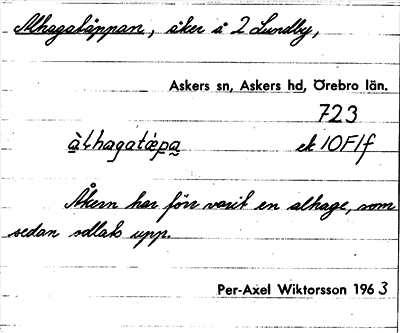 Alhagatäppan, åker å 2 Lundby,
Askers sn, Askers hd, Örebro län.
723
àlhagatæpa ek 10F1f
Åkern har förr varit en alhage, som
sedan odlats upp.
Per-Axel Wiktorsson 1963